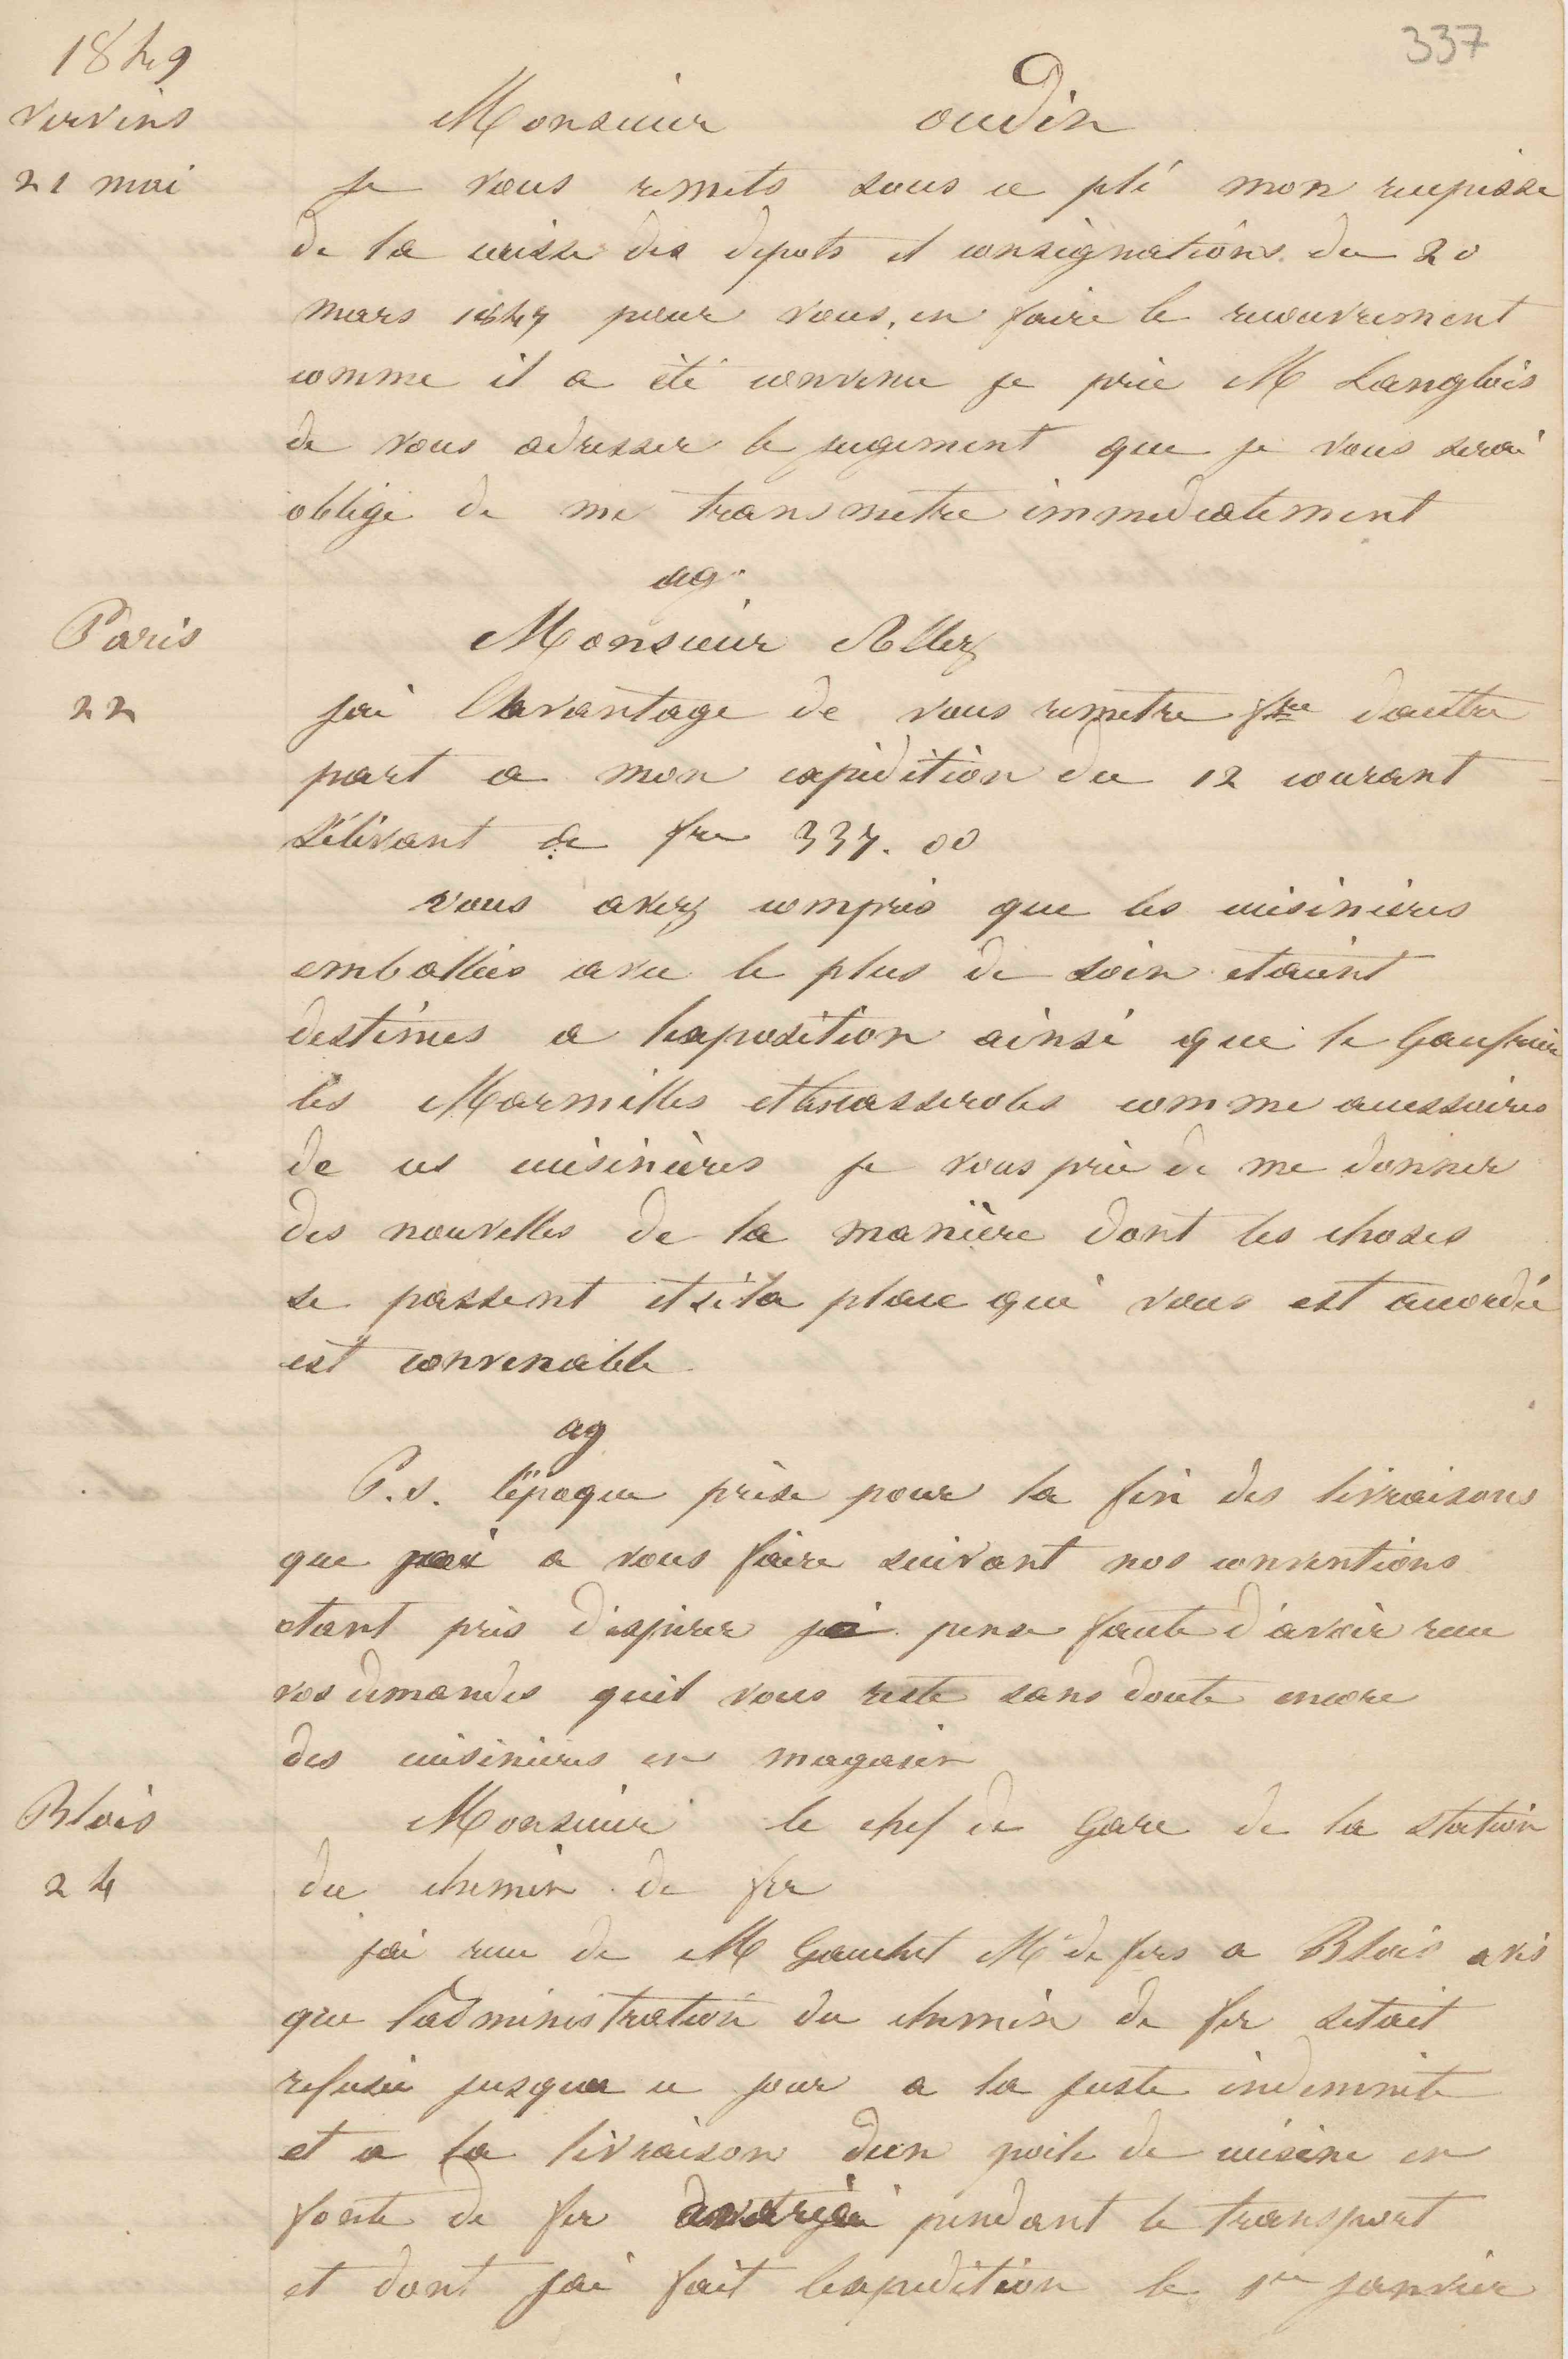 337
1849
vervins
21 mai
Monsieur oudin
Je vous remets sous ce pli mon recepisse
de la caisse des depots et consignations du 20
mars 1847 pour vous, en faire le recouvrement
comme il a été convenu je prie M Langlois
de vous adresser le jugement que je vous serai
obligé de me transmetre immediatement
ag
Paris
22
Monsieur Allez
jai lavantage de vous remetre fre dautre
part a mon expédition du 12 courant
s'élévant a fre 337.00
vous avez compris que les cuisinieres
emballées avec le plus de soin etaient
destinées a lexposition ainsi que le Gaufrier
les Marmittes et les casseroles comme accessoires
de ces cuisinières je vous prie de me donner
des nouvelles de la manière dont les choses
se passent et si la place qui vous est accordée
est convenable
ag
P.S. l'époque prise pour la fin des livraisons
que jai a vous faire suivant nos conventions
etant près d'expirer jai pense faute d'avoir recu
vos demandes quil vous reste sans doute encore
des cuisinieres en magasin
Blois
24
Monsieur le chef de Gare de la station
du chemin de fer
jai recu de M Gauchet Md de fers a Blois avis
que l'administration du chemin de fer setait
refusée jusqua ce jour a la juste indemnite
et a la livraison dun poile de cuisine en
fonte de fer pendant le transport
et dont jai fait lexpedition le 1er janvier